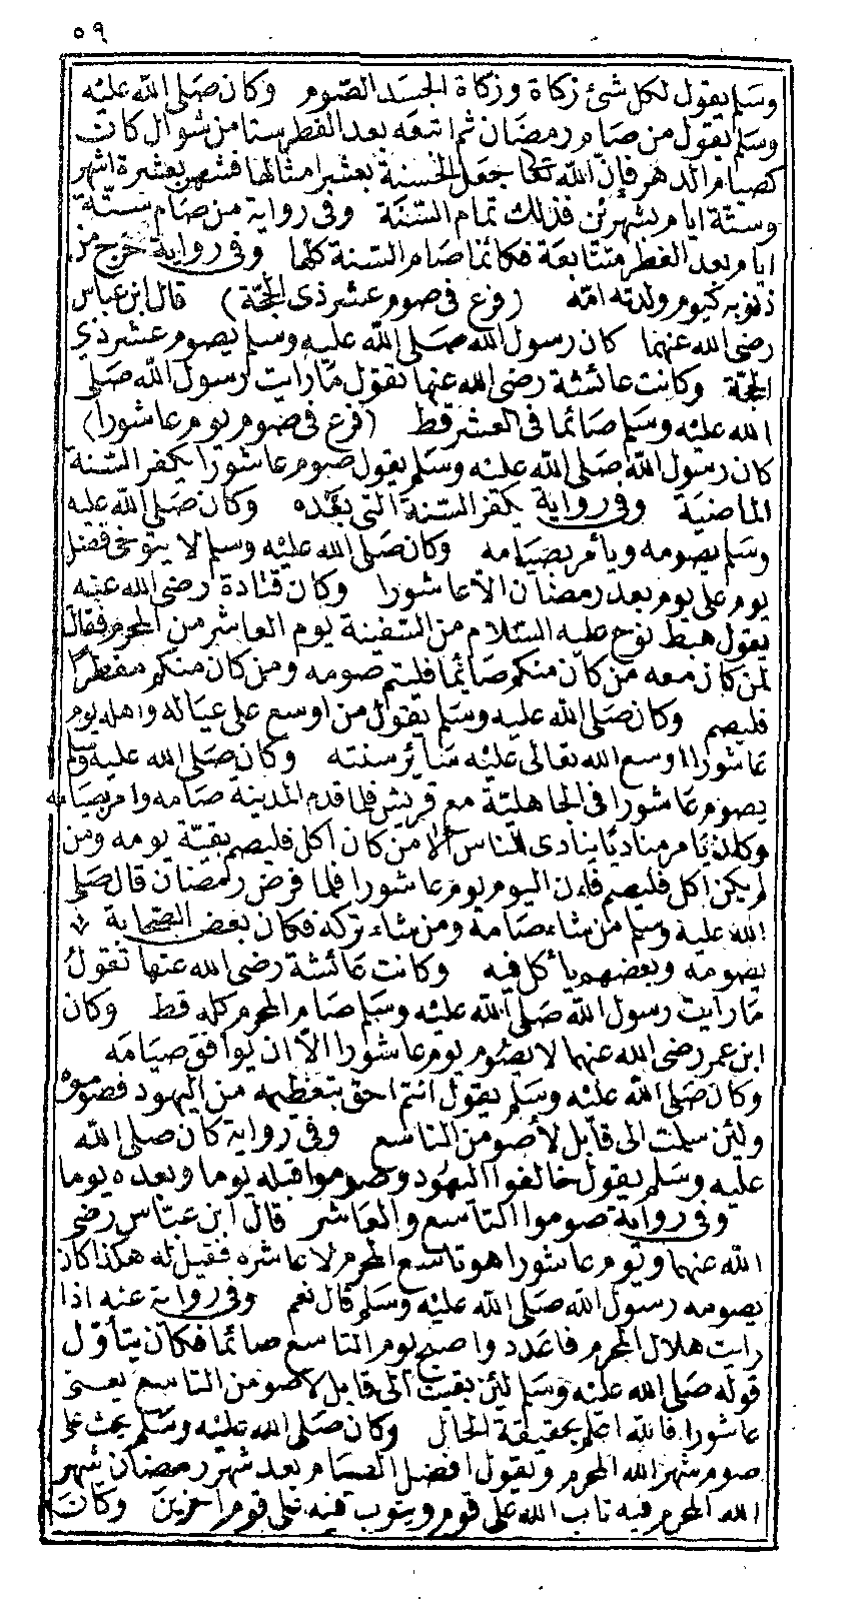 ٥٩
وسلم يقول لكل شئ زكاة وزكاة الجسد الصوم وكان صلى الله عليه
وسلم يقول من صام رمضان ثم اتبعه بعد الفطر ستا من شوال كان
كصيام الدهر فإن الله تعالى جعل الحسنة بعشر امثالها فشهر بعشرة اشهر
وستة ايام بشهرين فذلك تمام السنة وفى رواية من صام ستة
ايام بعد الفطر متتابعة فكانما صام السنة كلها وفى رواية خرج من
ذنوبه كيوم ولدته امه (فرع فى صوم عشر ذى الحجة) قال ابن عباس
رضى الله عنهما كان رسول الله صلى الله عليه وسلم يصوم عشر ذي
الحجة وكانت عائشة رضى الله عنها تقول ما رايت رسول الله صلى
الله عليه وسلم صائما فى العشر قط (فرع فى صوم يوم عاشورا)
كان رسول الله صلى الله عليه وسلم يقول صوم عاشورا يكفر السنة
الماضية وفى رواية يكفر السنة التى بعده وكان صلى الله عليه
وسلم يصومه ويأمر بصيامه وكان صلى الله عليه وسلم لا يتوخى فضل
يوم على يوم بعد رمضان الا عاشورا وكان قتادة رضى الله عنه
يقول هبط نوح عليه السلام من السفينة يوم العاشر من المحرم فقال
لمن كان معه من كان منكم صائما فليتم صومه ومن كان منكم مفطرا
فليصم وكان صلى الله عليه وسلم يقول من اوسع على عياله واهله يوم
عاشورا اوسع الله تعالى عليه سائر سنته وكان صلى الله عليه وسلم
يصوم عاشورا فى الجاهلية مع قريش فلما قدم المدينة صامه وامر بصيامه
وكان يامر مناديا ينادى الناس ألا من كان اكل فليصم بقية يومه ومن
لم يكن اكل فليصم فاءن اليوم يوم عاشورا فلما فرض رمضان قال صلى
الله عليه وسلم من شاء صامه ومن شاء تركه فكان بعض الصحابة
يصومه وبعضهم يأكل فيه وكانت عائشة رضى الله عنها تقول
ما رايت رسول الله صلى الله عليه وسلم صام المحرم كله قط وكان
ابن عمر رضى الله عنهما لا يصوم يوم عاشورا الا ان يوافق صيامه
وكان صلى الله عليه وسلم يقول انتم احق بتعظيمه من اليهود فصوموه
ولئن سلمت الى قابل لأصومن التاسع وفى رواية كان صلى الله
عليه وسلم يقول خالفوا اليهود وصوموا قبله يوما وبعده يوما
وفى رواية صوموا التاسع والعاشر قال ابن عباس رضى
الله عنهما ويوم عاشورا هو تاسع المحرم لا عاشره فقيل له هكذا كان
يصومه رسول الله صلى الله عليه وسلم قال نعم وفى رواية عنه اذا
رايت هلال المحرم فاعدد واصبح يوم التاسع صائما فكان يتأول
قوله صلى الله عليه وسلم لئن بقيت الى قابل لاصومن التاسع يعنى
عاشورا فالله اعلم بحقيقة الحال وكان صلى الله عليه وسلم يحث على
صوم شهر الله المحرم ويقول افضل الصيام بعد شهر رمضان شهر
الله المحرم فيه تاب الله على قوم ويتوب فيه على قوم آخرين وكان